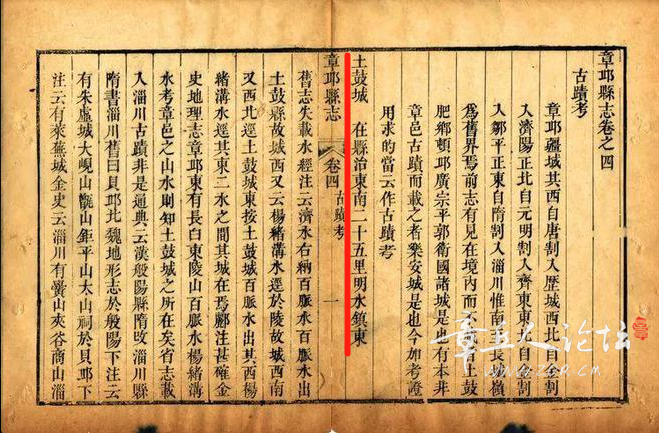 章邱縣志卷之四
古蹟考
章邱疆域其西自唐割入歷城西北自金割
入濟陽正北自元明割入齊東東自割
入鄒平正東自隋割入淄川惟南長嶺
爲舊界焉前志有見在境內而土鼓
肥鄉頓邱廣宗平郭衛國諸城是也有本非
章邑古蹟而載之者樂安城是也今加考證
用求的當云作古蹟考
土鼓城 在縣治東南二十五里明水鎮東
章邱縣志 卷四 古蹟考 一
舊志失載水經注云濟水右納百脈水百脈水出
土鼓縣故城西又云楊緒溝水逕於陵故城西南
又西北逕土鼓城東按土鼓城百脈水出其西楊
緒溝水逕其東二水之間其城在焉酈注甚確金
史地理志章邱東有長白東陵山百脈水楊緒溝
水考章邑之山水則知土鼓城之所在矣省志載
入淄川古蹟非是通典云漢般陽縣隋改淄川縣
隋書淄川舊曰貝邱北魏地形志於般陽下注云
有朱虛城大峴山甗山鉅平山太山祠於貝邱下
注云有萊蕪城金史云淄川有山夾谷商山淄
章丘人论坛